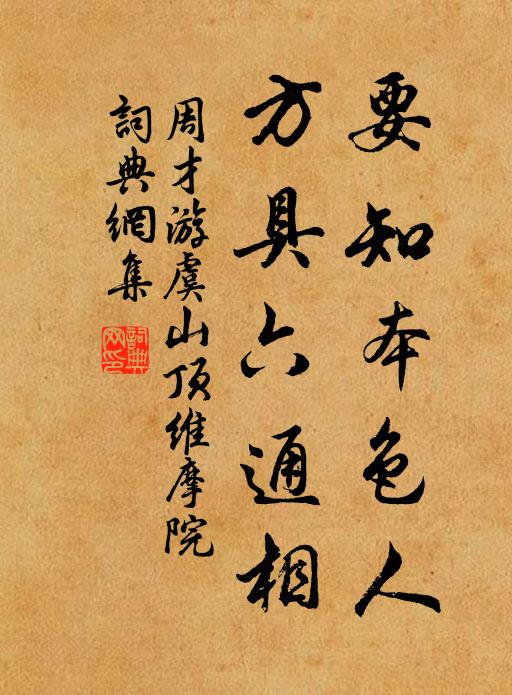 要知本色人
方具六通相
周才游虞山頂維摩院
詞典網集
詞典網印